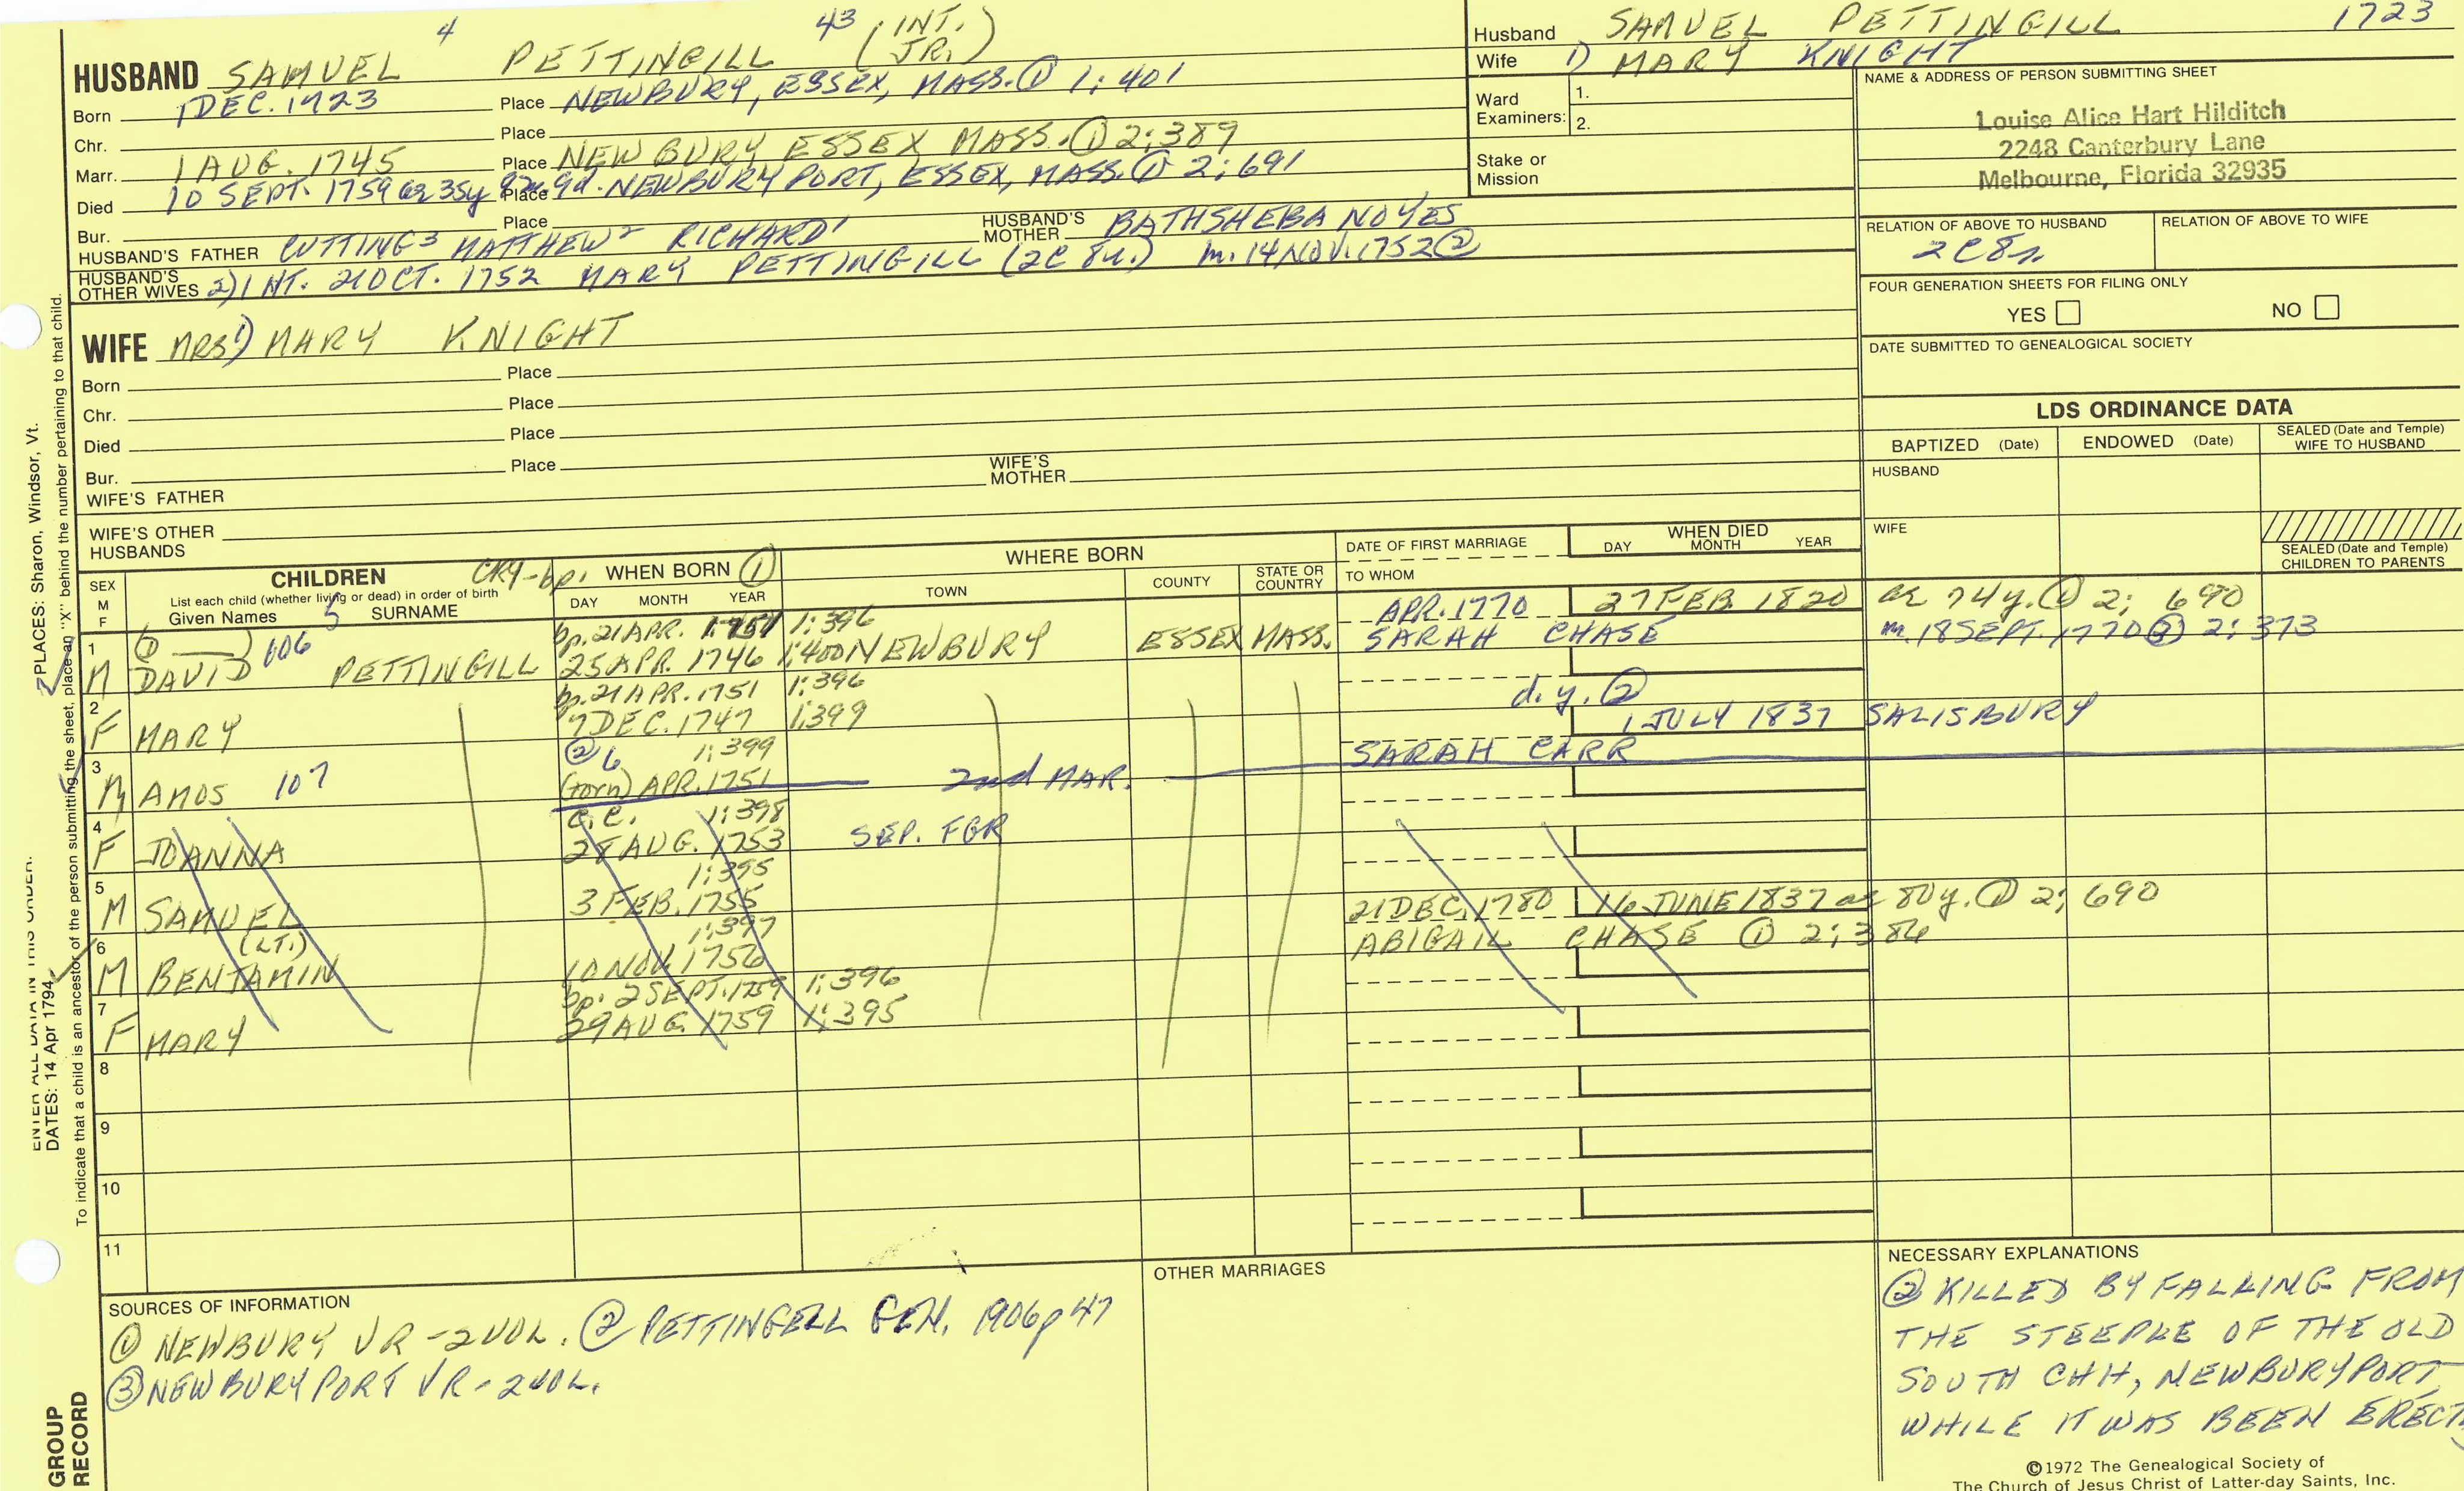 HUSBAND SAMUEL 4 PETTINGILL 43 (INT. JR.)
Born 1 DEC. 1723 Place NEWBURY, ESSEX, MASS. ① 1:401
Chr. Place
Marr. 1 AUG. 1745 Place NEWBURY ESSEX MASS. ① 2:389
Died 10 SEPT. 1759 ae 35y 9m 9d. Place NEWBURYPORT, ESSEX, MASS. ① 2:691
Bur. Place
HUSBAND'S FATHER CUTTING3 MATTHEW2 RICHARD1 HUSBAND'S MOTHER BATHSHEBA NOYES
HUSBAND'S OTHER WIVES 2) INT. 21 OCT. 1752 MARY PETTINGILL (2C 8r.) m. 14 NOV. 1752 ②
Husband SAMUEL PETTINGILL 1723
Wife 1) MARY KNIGHT
Ward Examiners: 1.
2.
Stake or Mission
NAME & ADDRESS OF PERSON SUBMITTING SHEET
Louise Alice Hart Hilditch
2248 Canterbury Lane
Melbourne, Florida 32935
RELATION OF ABOVE TO HUSBAND RELATION OF ABOVE TO WIFE
2C8r
FOUR GENERATION SHEETS FOR FILING ONLY
YES NO
DATE SUBMITTED TO GENEALOGICAL SOCIETY
WIFE MRS 1) MARY KNIGHT
Born Place
Chr. Place
Died Place
Bur. Place
WIFE'S FATHER WIFE'S MOTHER
WIFE'S OTHER HUSBANDS
LDS ORDINANCE DATA
BAPTIZED (Date) ENDOWED (Date) SEALED (Date and Temple) WIFE TO HUSBAND
HUSBAND
WIFE
SEALED (Date and Temple) CHILDREN TO PARENTS
SEX M F
CHILDREN
List each child (whether living or dead) in order of birth
Given Names SURNAME 5
CR4-bp. WHEN BORN ①
DAY MONTH YEAR
WHERE BORN
TOWN COUNTY STATE OR COUNTRY
DATE OF FIRST MARRIAGE
TO WHOM
WHEN DIED
DAY MONTH YEAR
bp. 21 APR. 1751 1:396 APR. 1770 27 FEB. 1820 ae 74y. ① 2; 690
1 M DAVID 106 PETTINGILL 25 APR. 1746 1:400 NEWBURY ESSEX MASS. SARAH CHASE m. 18 SEPT. 1770 ③ 2:373
bp. 21 APR. 1751 1:396 d.y. ②
2 F MARY 7 DEC. 1747 1:399
② 6 1:399 1 JULY 1837 SALISBURY
3 M AMOS 107 (torn) APR. 1751 2nd MAR. SARAH CARR
C.C. 1:398
4 F JOANNA 28 AUG. 1753 SEP. FGR
1:395
5 M SAMUEL 3 FEB. 1755
(LT.) 1:397 21 DEC. 1780 16 JUNE 1837 ae 80y. ① 2; 690
6 M BENJAMIN 10 NOV. 1756 ABIGAIL CHASE ① 2:386
bp. 2 SEPT. 1759 1:396
7 F MARY 29 AUG. 1759 1:395
8
9
10
11
SOURCES OF INFORMATION
① NEWBURY VR - 2 VOL. ② PETTINGELL GEN. 1906 p 47
③ NEWBURYPORT VR - 2 VOL.
OTHER MARRIAGES
NECESSARY EXPLANATIONS
② KILLED BY FALLING FROM
THE STEEPLE OF THE OLD
SOUTH CHH, NEWBURYPORT
WHILE IT WAS BEEN ERECT
©1972 The Genealogical Society of
The Church of Jesus Christ of Latter-day Saints, Inc.
ENTER ALL DATA IN THIS ORDER:
PLACES: Sharon, Windsor, Vt.
DATES: 14 Apr 1794
To indicate that a child is an ancestor of the person submitting the sheet, place an "X" behind the number pertaining to that child.
GROUP
RECORD